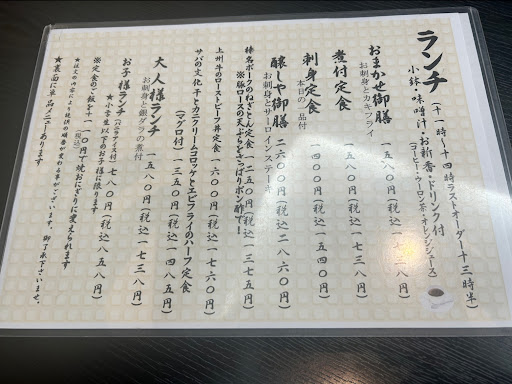 ランチ(十一時〜十四時ラストオーダー十三時半)
小鉢・味噌汁・お新香・ドリンク付
(コーヒー・ウーロン茶・オレンジジュース)
おまかせ御膳 一五八〇円(税込一七三八円)
お刺身とカキフライ
煮付定食 一三八〇円(税込一五一八円)
刺身定食 一四〇〇円(税込一五四〇円)
本日の一品付
醸しや御膳 二六〇〇円(税込二八六〇円)
お刺身とサーロインステーキ
榛名ポークのねぎとん定食 一二五〇円(税込一三七五円)
※豚ロースの天ぷらをさっぱりポン酢で!
上州牛のローストビーフ丼定食 一六〇〇円(税込一七六〇円)
サバの文化干とカニクリームコロッケとエビフライのハーフ定食
(マグロ付) 一三五〇円(税込一四八五円)
大人様ランチ 一五八〇円(税込一七三八円)
お刺身と銀ダラの煮付
お子様ランチ(アイス付) 七八〇円(税込八五八円)
★小学生以下のお子様に限ります
※定食のご飯を+一〇〇円(税込一一〇円)で焼おにぎりに変えられます
★注文の内容により提供の順番が変わる事がございます。御了承下さいませ。
★裏面に単品メニューあります